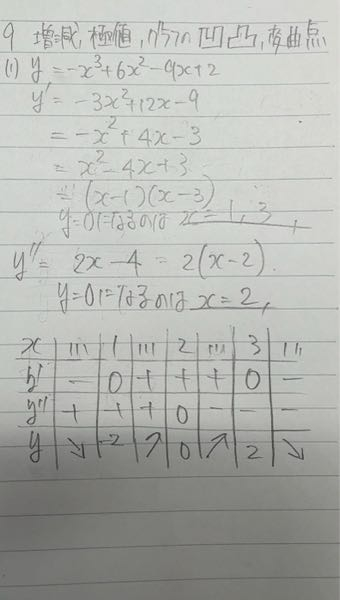 9 増減, 極値, グラフの凹凸, 変曲点
(1) y = -x³+6x²-9x+2
y' = -3x²+12x-9
= -x²+4x-3
= x²-4x+3
= (x-1)(x-3)
y=0になるのは x=1, 3
y''= 2x-4 = 2(x-2).
y=0になるのは x=2,
x | ... | 1 | ... | 2 | ... | 3 | ...
y' | - | 0 | + | + | + | 0 | -
y'' | + | + | + | 0 | - | - | -
y | ↘ | -2 | ↗ | 0 | ↗ | 2 | ↘